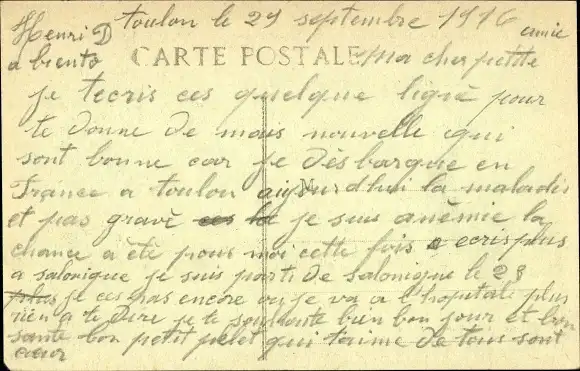 Henri D
a biento
toulon le 29 septembre 1916
CARTE POSTALE
Ma cher petite
amie
je tecris ces quelque ligne pour
te donne de mais nouvelle qui
sont bonne car je dèsbarque en
France a toulon aujourdhui la maladis
et pas gravè je suis anèmie la
chance a étè pous moi cette fois ecris plus
a salonique je suis parti de salonique le 23
plus je ces pas encore ou je va a l'hopitale plus
rien a te dire je te souhaite bien bon jour et bon
sante bon petit qui taime de tous sont
cœur